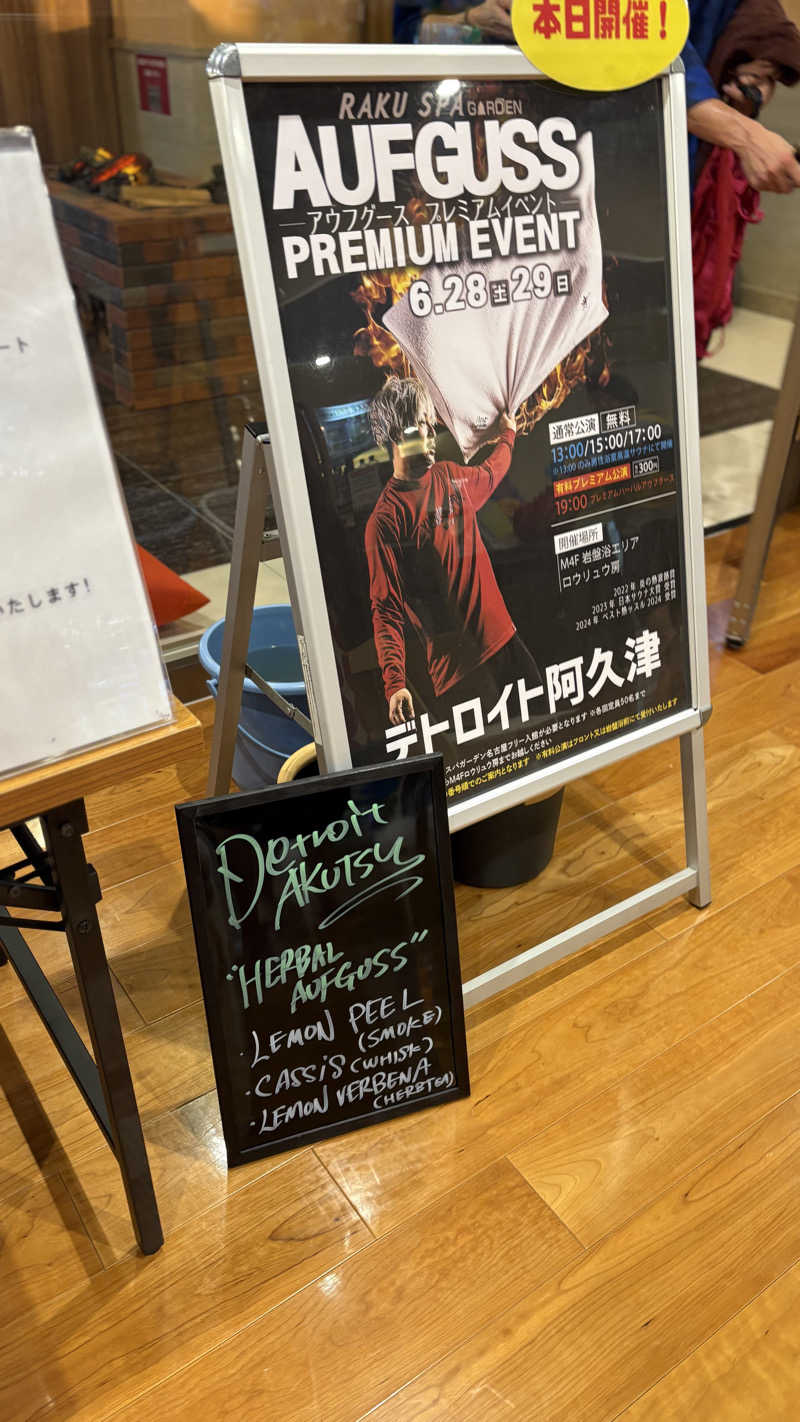 本日開催！
RAKU SPA GARDEN
AUFGUSS
アウフグース プレミアムイベント
PREMIUM EVENT
6.28土29日
通常公演 無料
13:00/15:00/17:00
※13:00のみ男性浴室高温サウナにて開催
有料プレミアム公演 300円
19:00 プレミアムハーバルアウフグース
開催場所
M4F 岩盤浴エリア
ロウリュウ房
2022年 炎の熱波師賞
2023年 日本サウナ大賞 受賞
2024年 ベスト熱ッスル2024 受賞
デトロイト阿久津
スパガーデン名古屋フリー入館が必要となります ※各回定員50名まで
M4Fロウリュウ房までお越しください
番号順でのご案内となります ※有料公演はフロント又は岩盤浴前にて受付いたします
ート
いたします!
Detroit
AKUTSU
"HERBAL
AUFGUSS"
・LEMON PEEL
(SMOKE)
・CASSiS (WHISK)
・LEMON VERBENA
(HERBTEA)